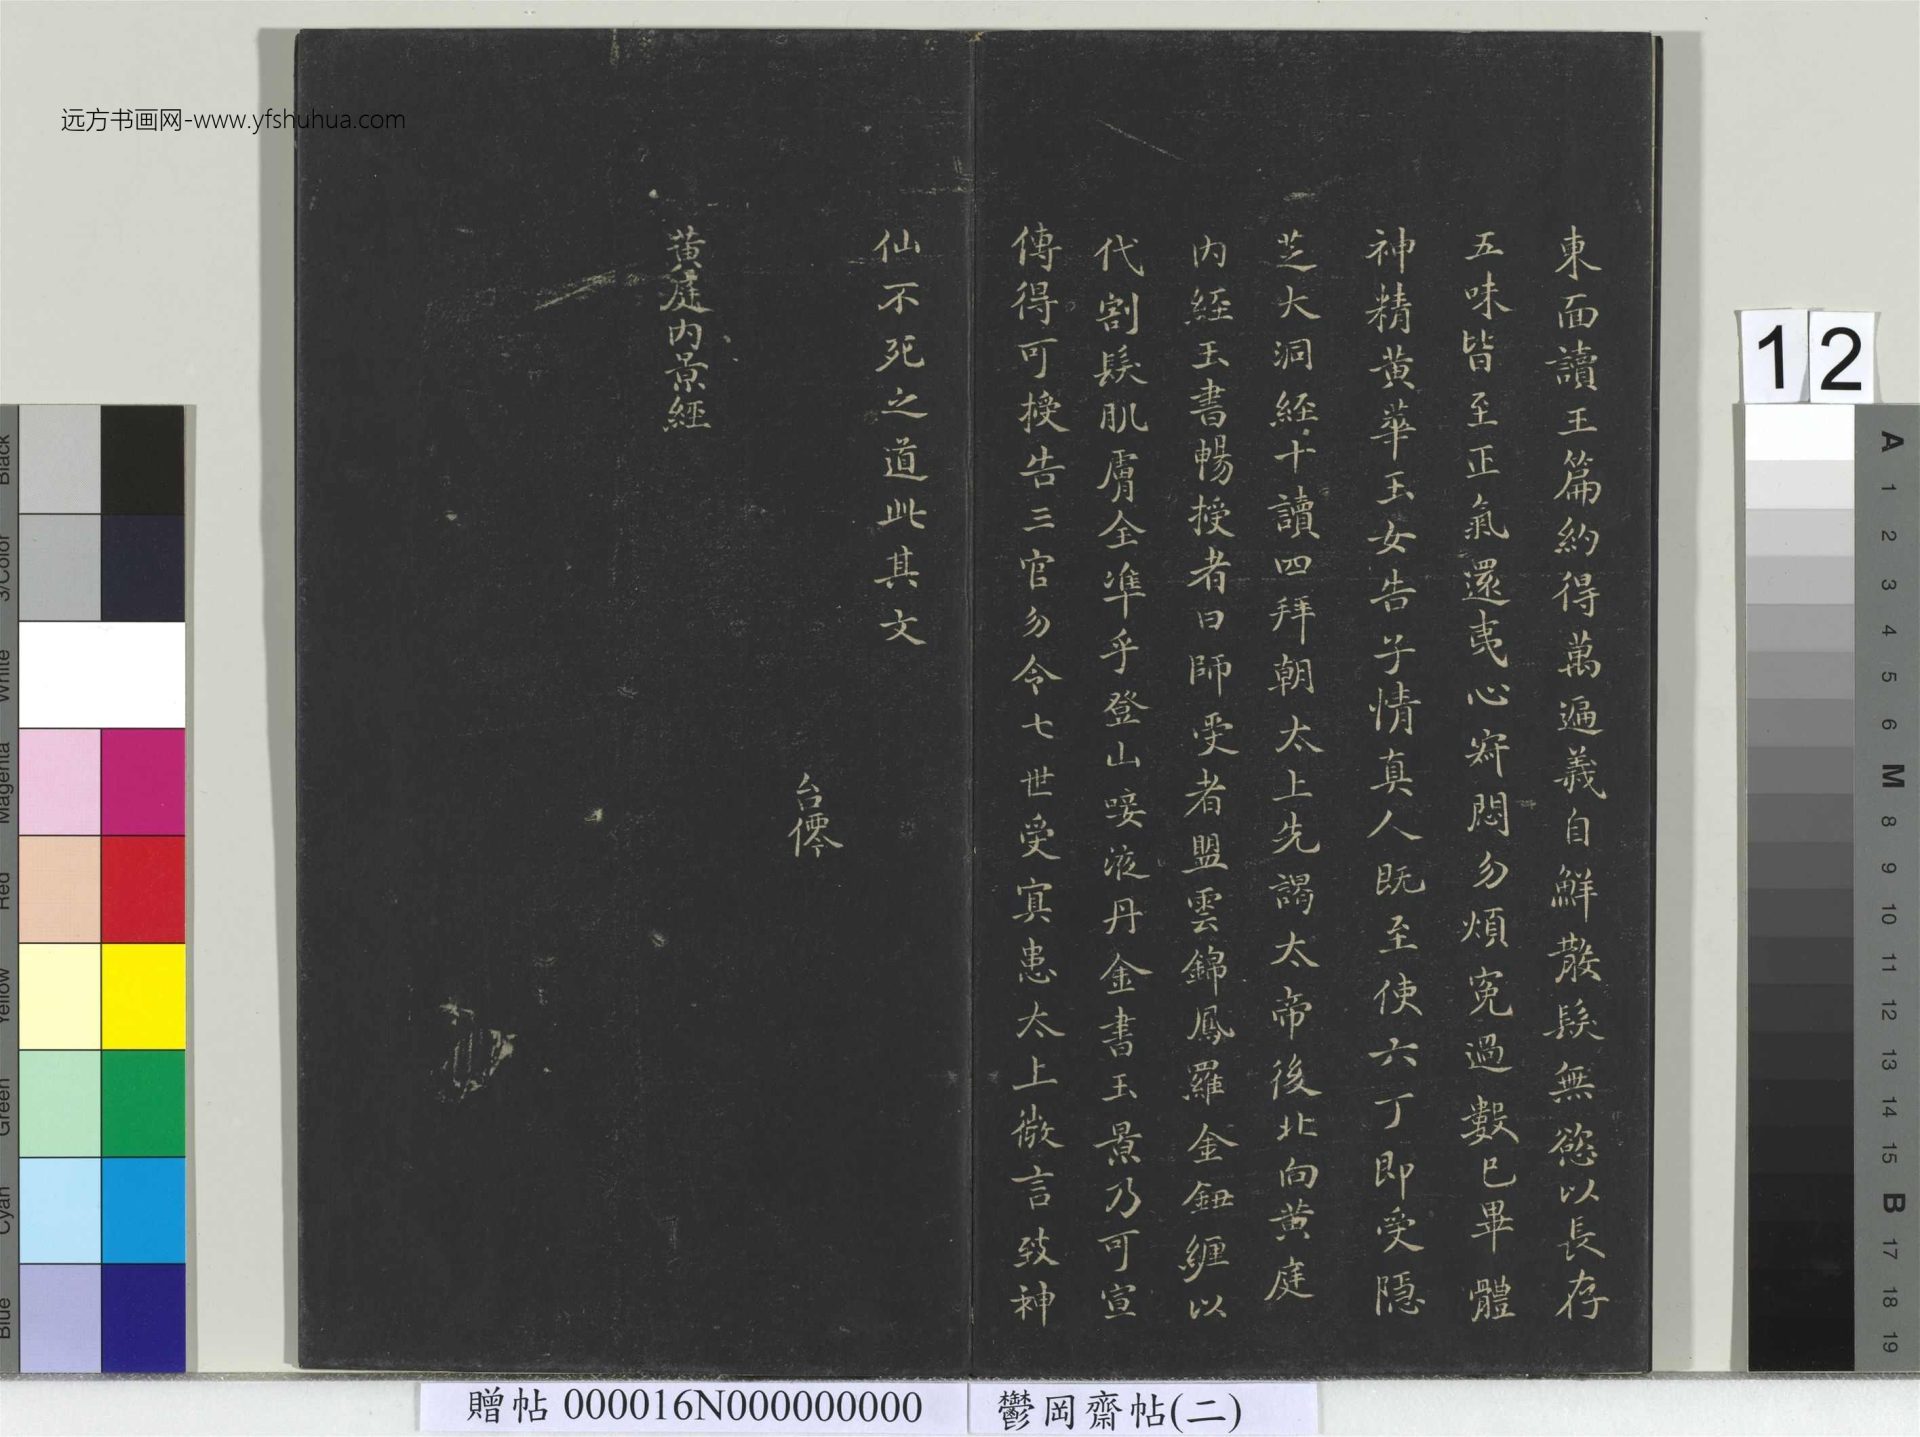 東面讀玉篇約得萬遍義自鮮散髮無慾以長存
五味皆至正氣還夷心寂悶勿煩冤過數已畢體
神精黃華玉女告子情真人既至使六丁即受隱
芝大洞經十讀四拜朝太上先謁太帝後北向黃庭
內經玉書暢授者曰師受者盟雲錦鳳羅金鈕纏以
代割髮肌膚全準乎登山唼液丹金書玉景乃可宣
傳得可授告三官勿令七世受冥患太上微言致神
仙不死之道此其文
黃庭內景經
远方书画网-www.yfshuhua.com
12
Black
3/Color
White
Magenta
Red
Yellow
Green
Cyan
Blue
A
1
2
3
4
5
6
M
8
9
10
11
12
13
14
15
B
17
18
19
贈帖 000016N000000000
鬱岡齋帖(二)